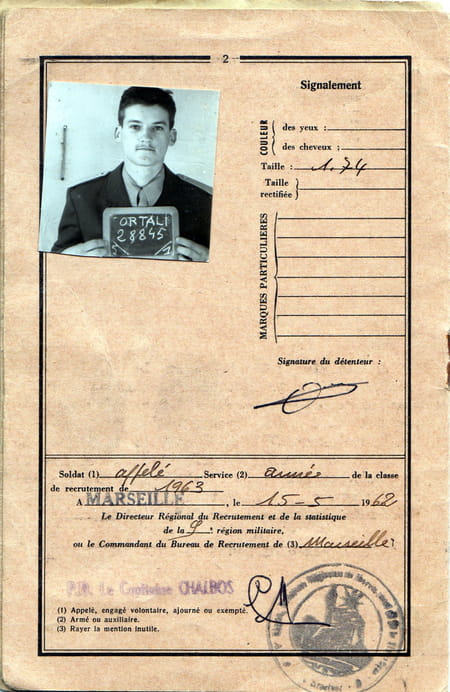 2
Signalement
COULEUR
des yeux :
des cheveux :
Taille : 1.74
Taille
rectifiée
MARQUES PARTICULIERES
ORTALI
28845
Signature du détenteur :
Soldat (1) appelé Service (2) armée de la classe
de recrutement de 1963
A MARSEILLE, le 15-5 1962
Le Directeur Régional du Recrutement et de la statistique
de la 9e région militaire,
ou le Commandant du Bureau de Recrutement de (3) Marseille
P.O. Le Capitaine CHALBOS
(1) Appelé, engagé volontaire, ajourné ou exempté.
(2) Armé ou auxiliaire.
(3) Rayer la mention inutile.